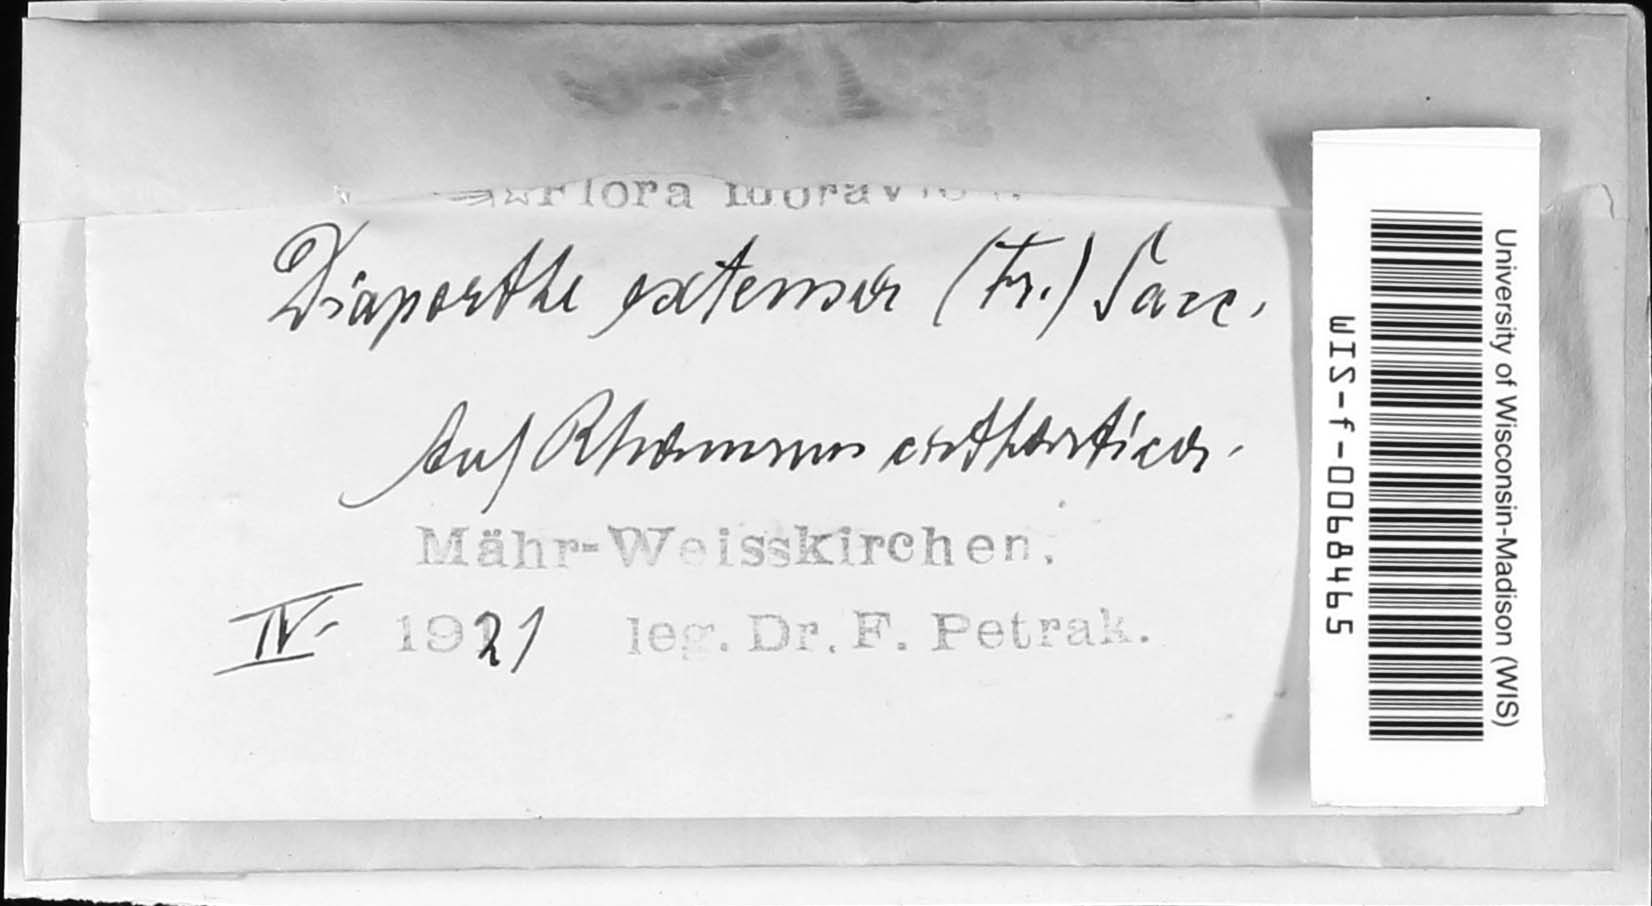 flora moravica.
Diaporthe extensa (Fr.) Sacc.
Auf Rhamnus cathartica.
Mähr-Weisskirchen.
IV. 1921 leg. Dr. F. Petrak.
WIS-f-0068465
University of Wisconsin-Madison (WIS)